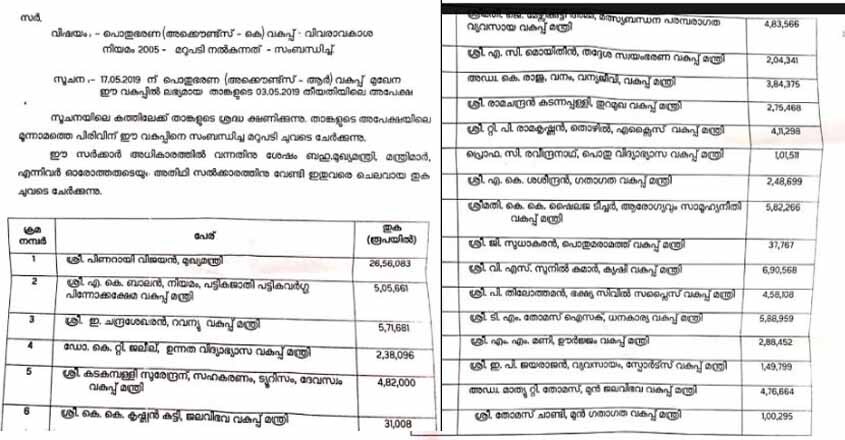 സർ,
വിഷയം, - പൊതുഭരണ(അക്കൌണ്ട്സ് - കെ) വകുപ്പ് - വിവരാവകാശ
നിയമം 2005 - മറുപടി നൽകുന്നത് - സംബന്ധിച്ച്
സൂചന ,- 17.05.2019 ന് പൊതുഭരണ (അക്കൌണ്ട്സ് - ആർ) വകുപ്പ് മുഖേന
ഈ വകുപ്പിൽ ലഭ്യമായ താങ്കളുടെ 03.05.2019 തീയതിയിലെ അപേക്ഷ
സൂചനയിലെ കത്തിലേക്ക് താങ്കളുടെ ശ്രദ്ധ ക്ഷണിക്കുന്നു. താങ്കളുടെ അപേക്ഷയിലെ
മൂന്നാമത്തെ പിരിവിന് ഈ വകുപ്പിനെ സംബന്ധിച്ച മറുപടി ചുവടെ ചേർക്കുന്നു.
ഈ സർക്കാർ അധികാരത്തിൽ വന്നതിനു ശേഷം ബഹു.മുഖ്യമന്ത്രി, മന്ത്രിമാർ,
എന്നിവർ ഓരോത്തരുടെയും അതിഥി സൽക്കാരത്തിനു വേണ്ടി ഇതുവരെ ചെലവായ തുക
ചുവടെ ചേർക്കുന്നു.
ക്രമ നമ്പർ പേര് തുക (രൂപയിൽ)
1 ശ്രീ. പിണറായി വിജയൻ, മുഖ്യമന്ത്രി 26,56,083
2 ശ്രീ. എ. കെ. ബാലൻ, നിയമം, പട്ടികജാതി പട്ടികവർഗ്ഗ
പിന്നോക്കക്ഷേമ വകുപ്പ് മന്ത്രി 5,05,661
3 ശ്രീ. ഇ. ചന്ദ്രശേഖരൻ, റവന്യൂ വകുപ്പ് മന്ത്രി 5,71,681
4 ഡോ. കെ. റ്റി. ജലീല്‍, ഉന്നത വിദ്യാഭ്യാസ വകുപ്പ് മന്ത്രി 2,38,096
5 ശ്രീ. കടകമ്പള്ളി സുരേന്ദ്രന്, സഹകരണം, ടൂറിസം, ദേവസ്വം
വകുപ്പ് മന്ത്രി 4,82,000
6 ശ്രീ. കെ. കെ. കൃഷ്ണൻ കുട്ടി, ജലവിഭവ വകുപ്പ് മന്ത്രി 31,008
ശ്രീമതി. ജെ. മേഴ്സിക്കുട്ടി അമ്മ, മത്സ്യബന്ധന പരമ്പരാഗത
വ്യവസായ വകുപ്പ് മന്ത്രി 4,83,566
ശ്രീ. എ. സി. മൊയിതീൻ, തദ്ദേശ സ്വയംഭരണ വകുപ്പ് മന്ത്രി 2,04,341
അഡ്വ. കെ. രാജു, വനം, വന്യജീവി, വകുപ്പ് മന്ത്രി 3,84,375
ശ്രീ. രാമചന്ദ്രൻ കടന്നപ്പള്ളി, തുറമുഖ വകുപ്പ് മന്ത്രി 2,75,468
ശ്രീ. റ്റി. പി. രാമകൃഷ്ണൻ, തൊഴിൽ, എക്സൈസ് വകുപ്പ് മന്ത്രി 4,11,298
പ്രൊഫ. സി. രവീന്ദ്രനാഥ്, പൊതു വിദ്യാഭ്യാസ വകുപ്പ് മന്ത്രി 1,01,511
ശ്രീ. എ. കെ. ശശീന്ദ്രൻ, ഗതാഗത വകുപ്പ് മന്ത്രി 2,48,699
ശ്രീമതി. കെ. കെ. ഷൈലജ ടീച്ചർ, ആരോഗ്യവും സാമൂഹ്യനീതി
വകുപ്പ് മന്ത്രി 5,82,266
ശ്രീ. ജി. സുധാകരൻ, പൊതുമരാമത്ത് വകുപ്പ് മന്ത്രി 37,767
ശ്രീ. വി. എസ്. സുനിൽ കുമാർ, കൃഷി വകുപ്പ് മന്ത്രി 6,90,568
ശ്രീ. പി. തിലോത്തമൻ, ഭക്ഷ്യ സിവിൽ സപ്ലൈസ് വകുപ്പ് മന്ത്രി 4,58,108
ശ്രീ. ടി. എം. തോമസ് ഐസക്, ധനകാര്യ വകുപ്പ് മന്ത്രി 5,88,959
ശ്രീ. എം. എം. മണി, ഊർജ്ജം വകുപ്പ് മന്ത്രി 2,88,452
ശ്രീ. ഇ. പി. ജയരാജൻ, വ്യവസായം, സ്പോർട്സ് വകുപ്പ് മന്ത്രി 1,49,799
അഡ്വ. മാത്യു റ്റി. തോമസ്, മുൻ ജലവിഭവ വകുപ്പ് മന്ത്രി 4,76,664
ശ്രീ. തോമസ് ചാണ്ടി, മുൻ ഗതാഗത വകുപ്പ് മന്ത്രി 1,00,295